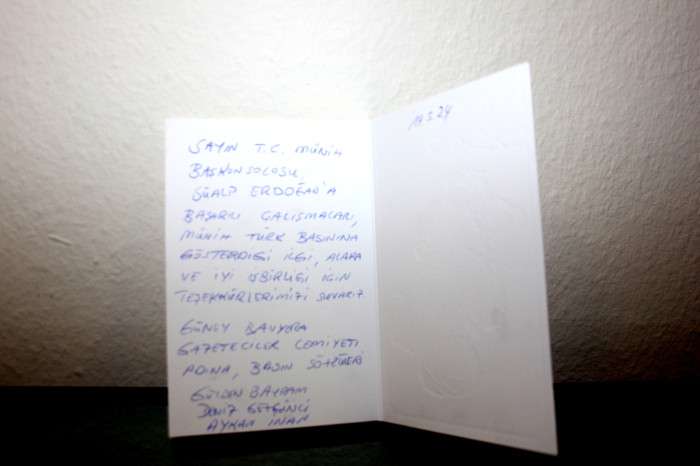 SAYIN T.C. MÜNİH
BAŞKONSOLOSU,
GÜALP ERDOĞAN'A
BAŞARILI ÇALIŞMALARI,
MÜNİH TÜRK BASININA
GÖSTERDİĞİ İLGİ, ALAKA
VE İYİ İŞBİRLİĞİ İÇİN
TEŞEKKÜRLERİMİZİ SUNARIZ
GÜNEY BAVYERA
GAZETECİLER CEMİYETİ
ADINA, BASIN SÖZCÜLERİ
BAYRAM
DENİZ
AYKAN İNAN